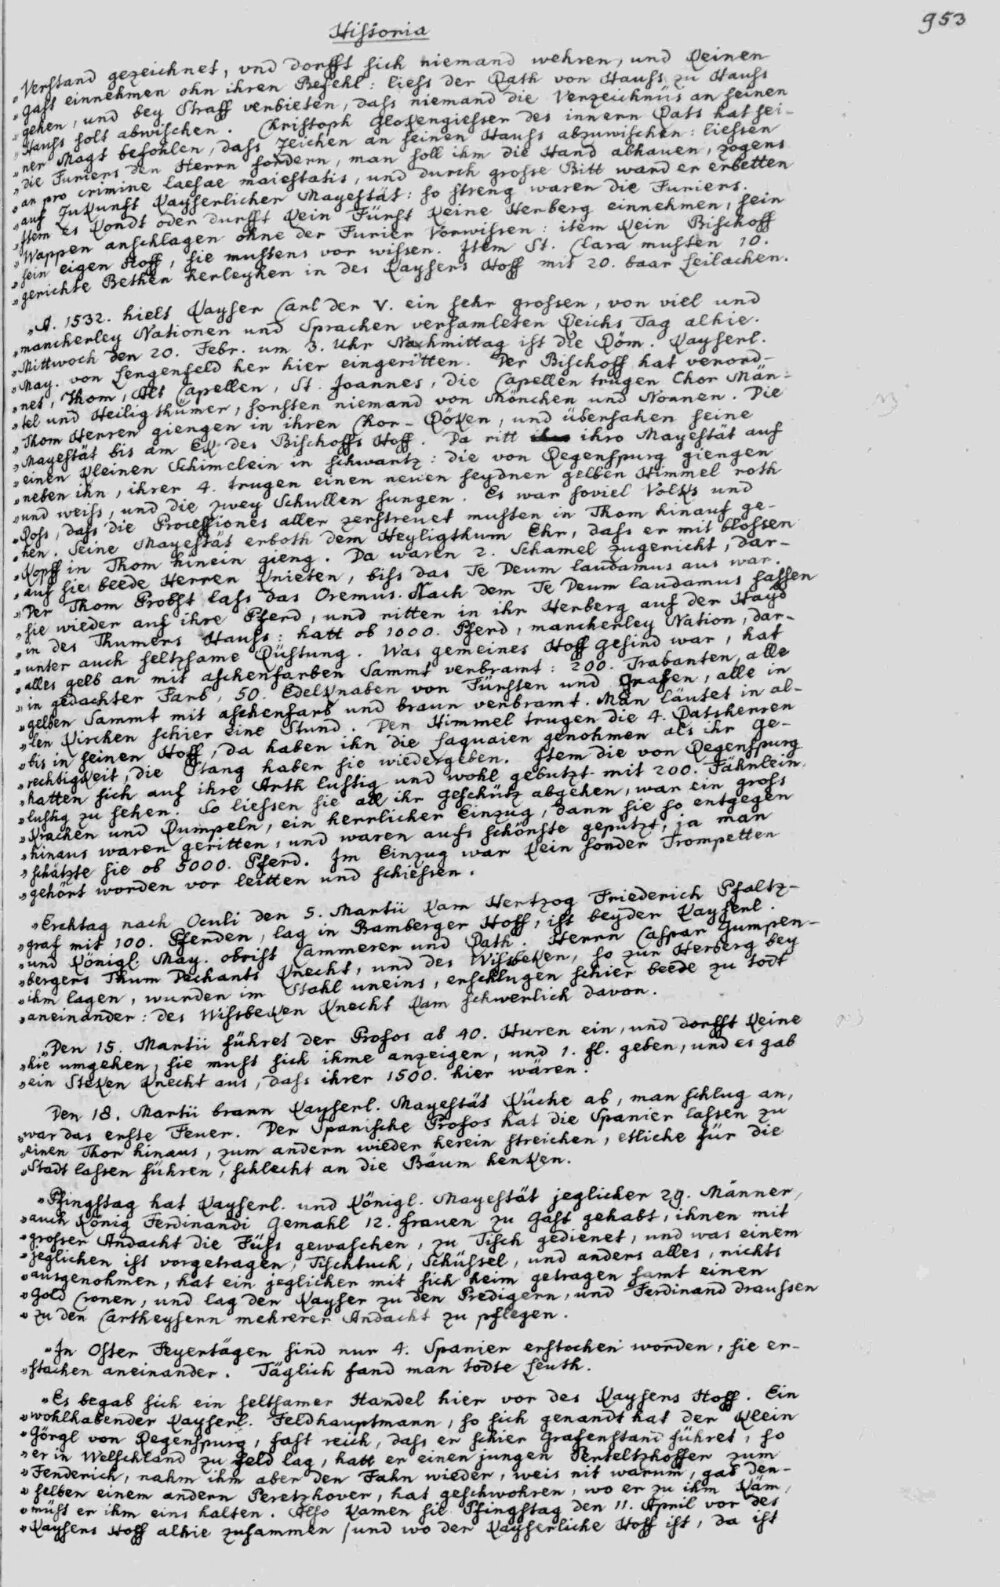 Historia
953
„Verstand gezeichnet, vnd dorfft sich niemand wehren, und Keinen
„Gast einnehmen ohn ihren Befehl: liess der Rath von Hauss zu Hauss
„gehen, und bey Straff verbieten, dass niemand die Verzeichnüs an seinen
„Hauss solt abwischen. Christoph Glokengiesser des innern Rats hat sei-
„ner Magt befohlen, dass zeichen an seinen Hauss abzuwischen: liessen
„die Furiers den Herrn fordern, man soll ihm die Hand abhauen, zogens
„an pro crimine laesae maiestatis, und durch grosse Bitt ward er erbetten
„auf Zukunft Kayserlicher Mayestät: so streng waren die Furiers.
„Item es Kondt oder durfft Kein Fürst Keine Herberg einnehmen, sein
„Wappen anschlagen ohne der Furier Vorwissen: item Kein Bischoff
„sein eigen Hoff, sie mustens vor wissen. Item St. Clara musten 10.
„gerichte Bether herleyhen in des Kaysers Hoff mit 20. baar Leilachen.
„A. 1532. hielt Kayser Carl der V. ein sehr grossen, von viel und
„mancherley Nationen und Sprachen versamleten Reichs Tag alhie.
„Mittwoch den 20. Febr. um 3. Uhr Nachmittag ist die Röm. Kayserl.
„May. von Lengenfeld her hier eingeritten. Der Bischoff hat verord-
„net, Thom, Alt Capellen, St. Joannes, die Capellen trugen Chor Män-
„tel und Heiligthümer, sonsten niemand von Mönchen und Nonnen. Die
„Thom Herren giengen in ihren Chor-Röken, und übersahen seine
„Mayestät bis am Ek des Bischoffs Hoff. Da ritt ihro Mayestät auf
„einen Kleinen Schimelein in schwartz: die von Regenspurg giengen
„neben ihn, ihrer 4. trugen einen neuen seydnen gelben Himmel roth
„und weiss, und die zwey Schullen sungen. Es war soviel Volks und
„Ross, dass die Processiones aller zerstreuet musten in Thom hinauf ge-
„hen. Seine Mayestät erboth dem Heyligthum Ehr, dass er mit blossen
„Kopff in Thom hinein gieng. Da waren 2. Schamel zugericht, dar-
„auf sie beede Herren Knieten, biss das Te Deum laudamus aus war.
„Der Thom Probst lass das Oremus. Nach dem Te Deum laudamus sassen
„sie wieder auf ihre Pferd, und ritten in ihr Herberg auf der Hayd
„in des Thumers Hauss: hatt ob 1000. Pferd, mancherley Nation, dar-
„unter auch seltzsame Rüstung. Was gemeines Hoff Gesind war, hat
„alles gelb an mit aschenfarben Sammt verbramt: 200. Trabanten, alle
„in gedachter Farb, 50. Edelknaben von Fürsten und Grafen, alle in
„gelben Sammt mit aschenfarb und braun verbramt. Man läutet in al-
„len Kirchen schier eine Stund. Den Himmel trugen die 4. Ratsherren
„bis in seinen Hoff, da haben ihn die Laquaien genohmen als ihr Ge-
„rechtigkeit, die Stang haben sie wiedergeben. Item die von Regenspurg
„hatten sich auf ihre Arth lustig und wohl gebutzt mit 200. Fähnlein,
„lustig zu sehen. So liessen sie all ihr Geschütz abgehen, war ein gross
„Krachen und Rumpeln, ein herrlicher Einzug, dann sie so entgegen
„hinaus waren geritten, und waren aufs schönste geputzt, ja man
„schätzte sie ob 5000. Pferd. Im Einzug war Kein sonder Trompetten
„gehört worden vor leitten und schiessen.
„Erchtag nach Oculi den 5. Martii Kam Hertzog Friederich Pfaltz-
„graf mit 100. Pferden, lag in Bamberger Hoff, ist beyder Kayserl.
„und Königl. May. obrist Cammerer und Rath. Herrn Caspar Gumpen-
„bergers Thum Dechants Knecht, und des Wissbeken, so zur Herberg bey
„ihm lagen, wurden im Stahl uneins, erschlugen schier beede zu todt
„aneinander: des Wissbeken Knecht Kam schwerlich davon.
„Den 15. Martii führet der Profos ab 40. Huren ein, und dorfft Keine
„hie umgehen, sie must sich ihme anzeigen, und 1. fl. geben, und es gab
„ein Steken Knecht aus, dass ihrer 1500. hier wären.
Den 18. Martii brann Kayserl. Mayestät Küche ab, man schlug an,
„war das erste Feuer. Der Spanische Profos hat die Spanier lassen zu
„einen Thor hinaus, zum andern wieder herein streichen, etliche für die
„Stadt lassen führen, schlecht an die Bäum henken.
„Pfingstag hat Kayserl. und Königl. Mayestät jeglicher 29. Männer,
„auch König Ferdinandi Gemahl 12. Frauen zu Gast gehabt, ihnen mit
„grosser Andacht die Füss gewaschen, zu Tisch gedienet, und was einem
„jeglichen ist vorgetragen, Tischtuch, Schüssel, und anders alles, nichts
„ausgenohmen, hat ein jeglicher mit sich heim getragen samt einen
„Gold Cronen, und lag der Kayser zu den Predigern, und Ferdinand draussen
„zu den Cartheysern mehrerer Andacht zu pflegen.
„In Oster Feyertägen sind nur 4. Spanier erstochen worden, sie er-
„stachen aneinander. Täglich fand man todte Leuth.
„Es begab sich ein seltsamer Handel hier vor des Kaysers Hoff. Ein
„wohlhabender Kayserl. Feldhauptmann, so sich genandt hat der Klein
„Görgl von Regenspurg, fast reich, dass er schier Grafenstand führet, so
„er in Welschland zu Feld lag, hatt er einen jungen Perteltzhoffer zum
„Fenderich, nahm ihm aber den Fahn wieder, weis nit warum, gab den-
„selben einem andern Peretzhover, hat geschwohren, wo er zu ihm Käm,
„müst er ihm eins halten. Also Kamen sie Pfingstag den 11. April vor des
„Kaysers Hoff alhie zusammen / und wo der Kayserliche Hoff ist, da ist